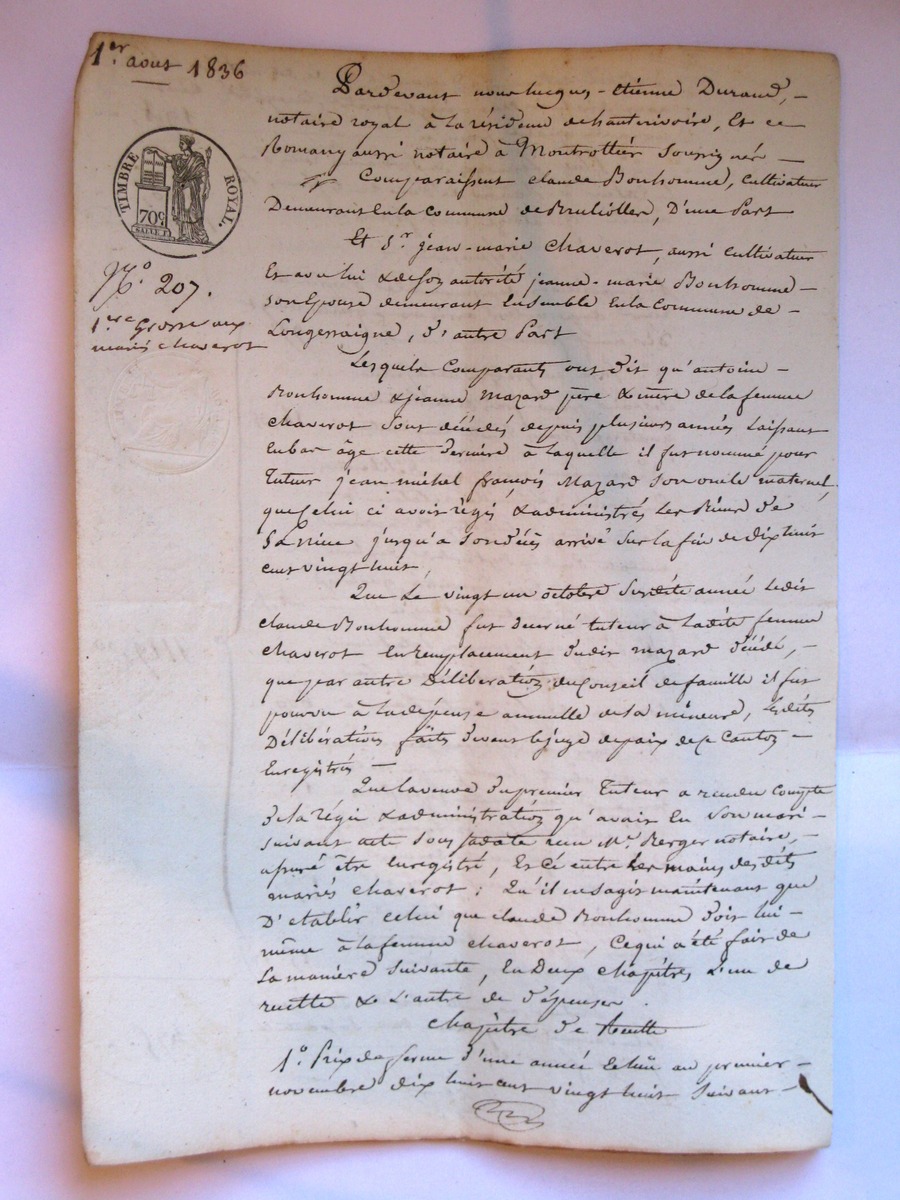 1er aout 1836
TIMBRE ROYAL.
70c
N° 207.
1ere Grosse aux
mariés chaverot
Pardevant nous Etienne Durand,
notaire royal à la résidence de hauterivoire, Et Me
Romany aussi notaire à Montrottier soussignés
Comparaissent claude Bonhomme, cultivateur
Demeurant En la commune de Brullolles, D'une Part
Et Sr jean-marie chaverot, aussi cultivateur
Et avec lui & de son autorité jeanne-marie Bonhomme
son Epouse demeurant Ensemble En la commune de
Longessaigne, d'autre Part
Lesquels Comparants ont dit qu'antoine
Bonhomme & jeanne mazard père & mère de la femme
chaverot sont décédés depuis plusieurs années Laissant
En bas âge cette dernière à laquelle il fut nommé pour
Tuteur jean michel françois Mazard son oncle maternel,
que celui ci avoit régis & administrés Les Biens de
Sa Nièce jusqu'a son décès arrivé sur la fin de dix huit
cent vingt huit,
Que Le vingt un octobre susdite année ledit
claude Bonhomme fut decerné tuteur à Ladite femme
chaverot En remplacement dudit mazard décédé,
que par autre Déliberation du Conseil de famille il fut
pourvu à la dépense annuelle de la mineure, Lesdites
Délibérations faites devant le juge de paix de ce Canton
Enregistrées
Que la veuve du premier Tuteur a rendu Compte
de la régie & administration qu'avait Eu Son mari
suivant acte sous sa date reçu Me Berger notaire,
assuré être Enregistré, Et ce entre Les mains desdits
mariés chaverot; Qu'il ne sagit maintenant que
D'etablir celui que claude Bonhomme doit lui
même à la femme chaverot, Ce qui a été fait de
La manière Suivante, En Deux chapitres L'un de
recette & L'autre de dépenses.
chapitre de Recette
1° Prix de ferme d'une année Echue au premier
novembre dix huit cent vingt huit suivant